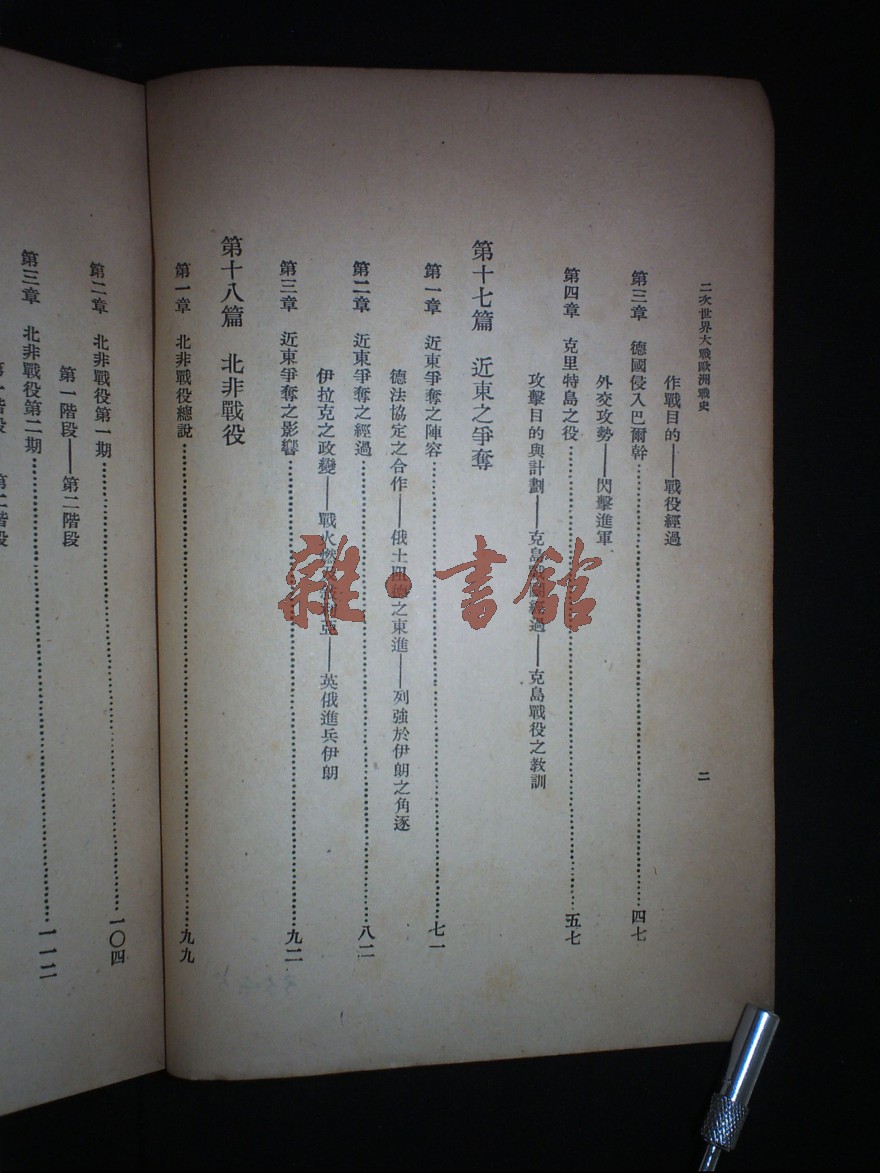 二次世界大戰歐洲戰史
二
作戰目的——戰役經過
第三章 德國侵入巴爾幹……四七
外交攻勢——閃擊進軍
第四章 克里特島之役……五七
攻擊目的與計劃——克島戰鬪經過——克島戰役之教訓
第十七篇 近東之爭奪
第一章 近東爭奪之陣容……七一
德法協定之合作——俄土 之東進——列強於伊朗之角逐
第二章 近東爭奪之經過……八二
伊拉克之政變——戰火燃 ——英俄進兵伊朗
第三章 近東爭奪之影響……九二
第十八篇 北非戰役
第一章 北非戰役總說……九九
第二章 北非戰役第一期……一〇四
第一階段——第二階段
第三章 北非戰役第二期……一一二
第一階段 第二階段
雜·書館